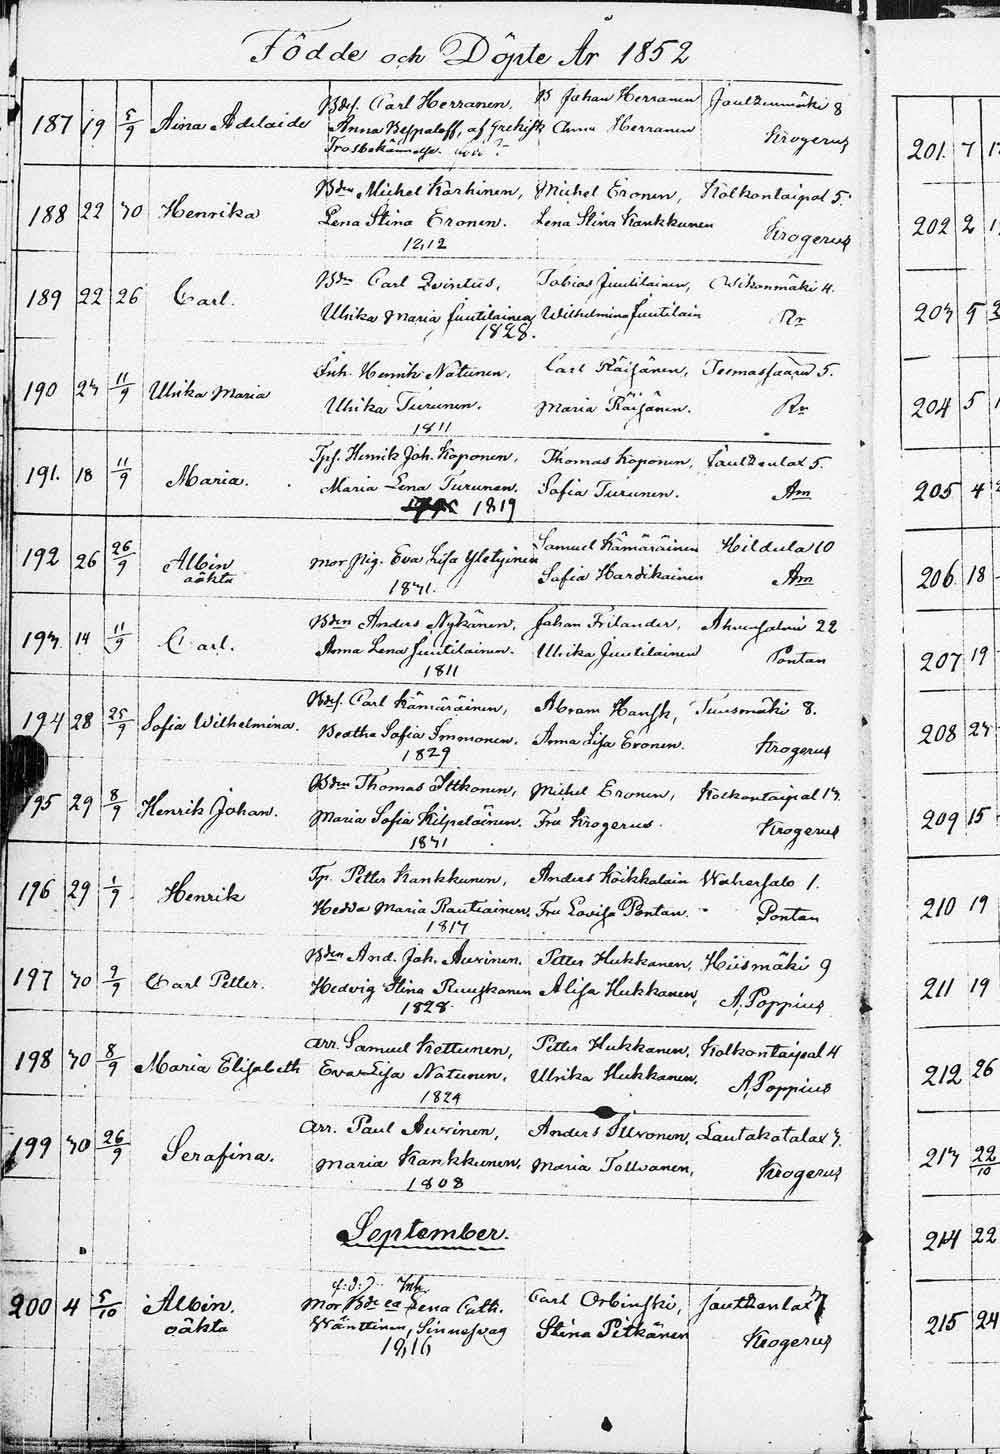 Födde och Döpte År 1852
187 19 5/9 Aina Adelaide Bdsf. Carl Herranen, B Johan Herranen Jouttenmäki 8
Anna Bespaloff, af Grekisk Anna Herranen Krogerus
Trosbekännelse.
201. 7
188 22 30 Henrika Bden Michel Karhinen, Michel Eronen, Kolkontaipal 5.
Lena Stina Eronen. Lena Stina Kankkunen Krogerus
1812
202 2
189 22 26 Carl. Bdn Carl Qvintus, Tobias Juutilainen, Wikonmäki 4.
Ulrika Maria Juutilainen Wilhelmina Juutilain Rr
1828.
203 5
190 23 11/9 Ulrika Maria Inh. Henrik Natunen, Carl Räisänen, Termassaari 5.
Ulrika Turunen. Maria Räisänen. Rr
1811
204 5
191. 18 11/9 Maria. Tpf. Henrik Joh. Koponen, Thomas Koponen, 5.
Maria Lena Turunen. Sofia Turunen. Am
1819
205 4
192 26 26/9 Albin mor Pig. Eva Lisa Yletyinen Samuel Kämäräinen Hildula 10
oäkta Sofia Hardikainen Am
1831.
206 18
193. 14 11/9 Carl. Bden Anders Nykänen, Johan Frilander, Ahvensalmi 22
Anna Lena Juutilainen. Ulrika Juutilainen Pontan
1811
207 19
194 28 25/9 Sofia Wilhelmina. Bdsf. Carl Kämäräinen, Abram Hansk, Tuusmäki 8.
Beatha Sofia Immonen. Anna Lisa Eronen. Krogerus
1829
208 23
195 29 8/9 Henrik Johan. Bden Thomas Ittkonen, Michel Eronen, Kolkontaipal 13.
Maria Sofia Kilpeläinen. Fru Krogerus. Krogerus
1831
209 15
196 29 1/9 Henrik Tp. Petter Kankkunen, Anders Koikkalain Wahersalo 1.
Hedda Maria Rautiainen, Fru Lovisa Pontan. Pontan
1817
210 19
197 30 9/9 Carl Petter. Bden And. Joh. Auvinen. Petter Hukkanen, Hiismäki 9
Hedvig Stina Ruuskanen A Lisa Hukkanen, A, Poppius
1828
211 19
198 30 8/9 Maria Elisabeth arr. Samuel Kettunen, Petter Hukkanen, Kolkontaipal 4
Eva Lisa Natunen, Ulrika Hukkanen, A, Poppius
1824
212 26
199 30 26/9 Serafina. arr. Paul Auvinen, Anders Ilvonen, Lautakotalax 3.
Maria Kankkunen, Maria Tolvanen, Krogerus
1808
213 22/10
September.
214 22
200 4 5/10 Albin. f.d. Inh.
mor Lena Cath. Carl Orbinski, 7
oäkta Wänttinen, Sinnessvag Stina Pitkänen Krogerus
1816
215 24